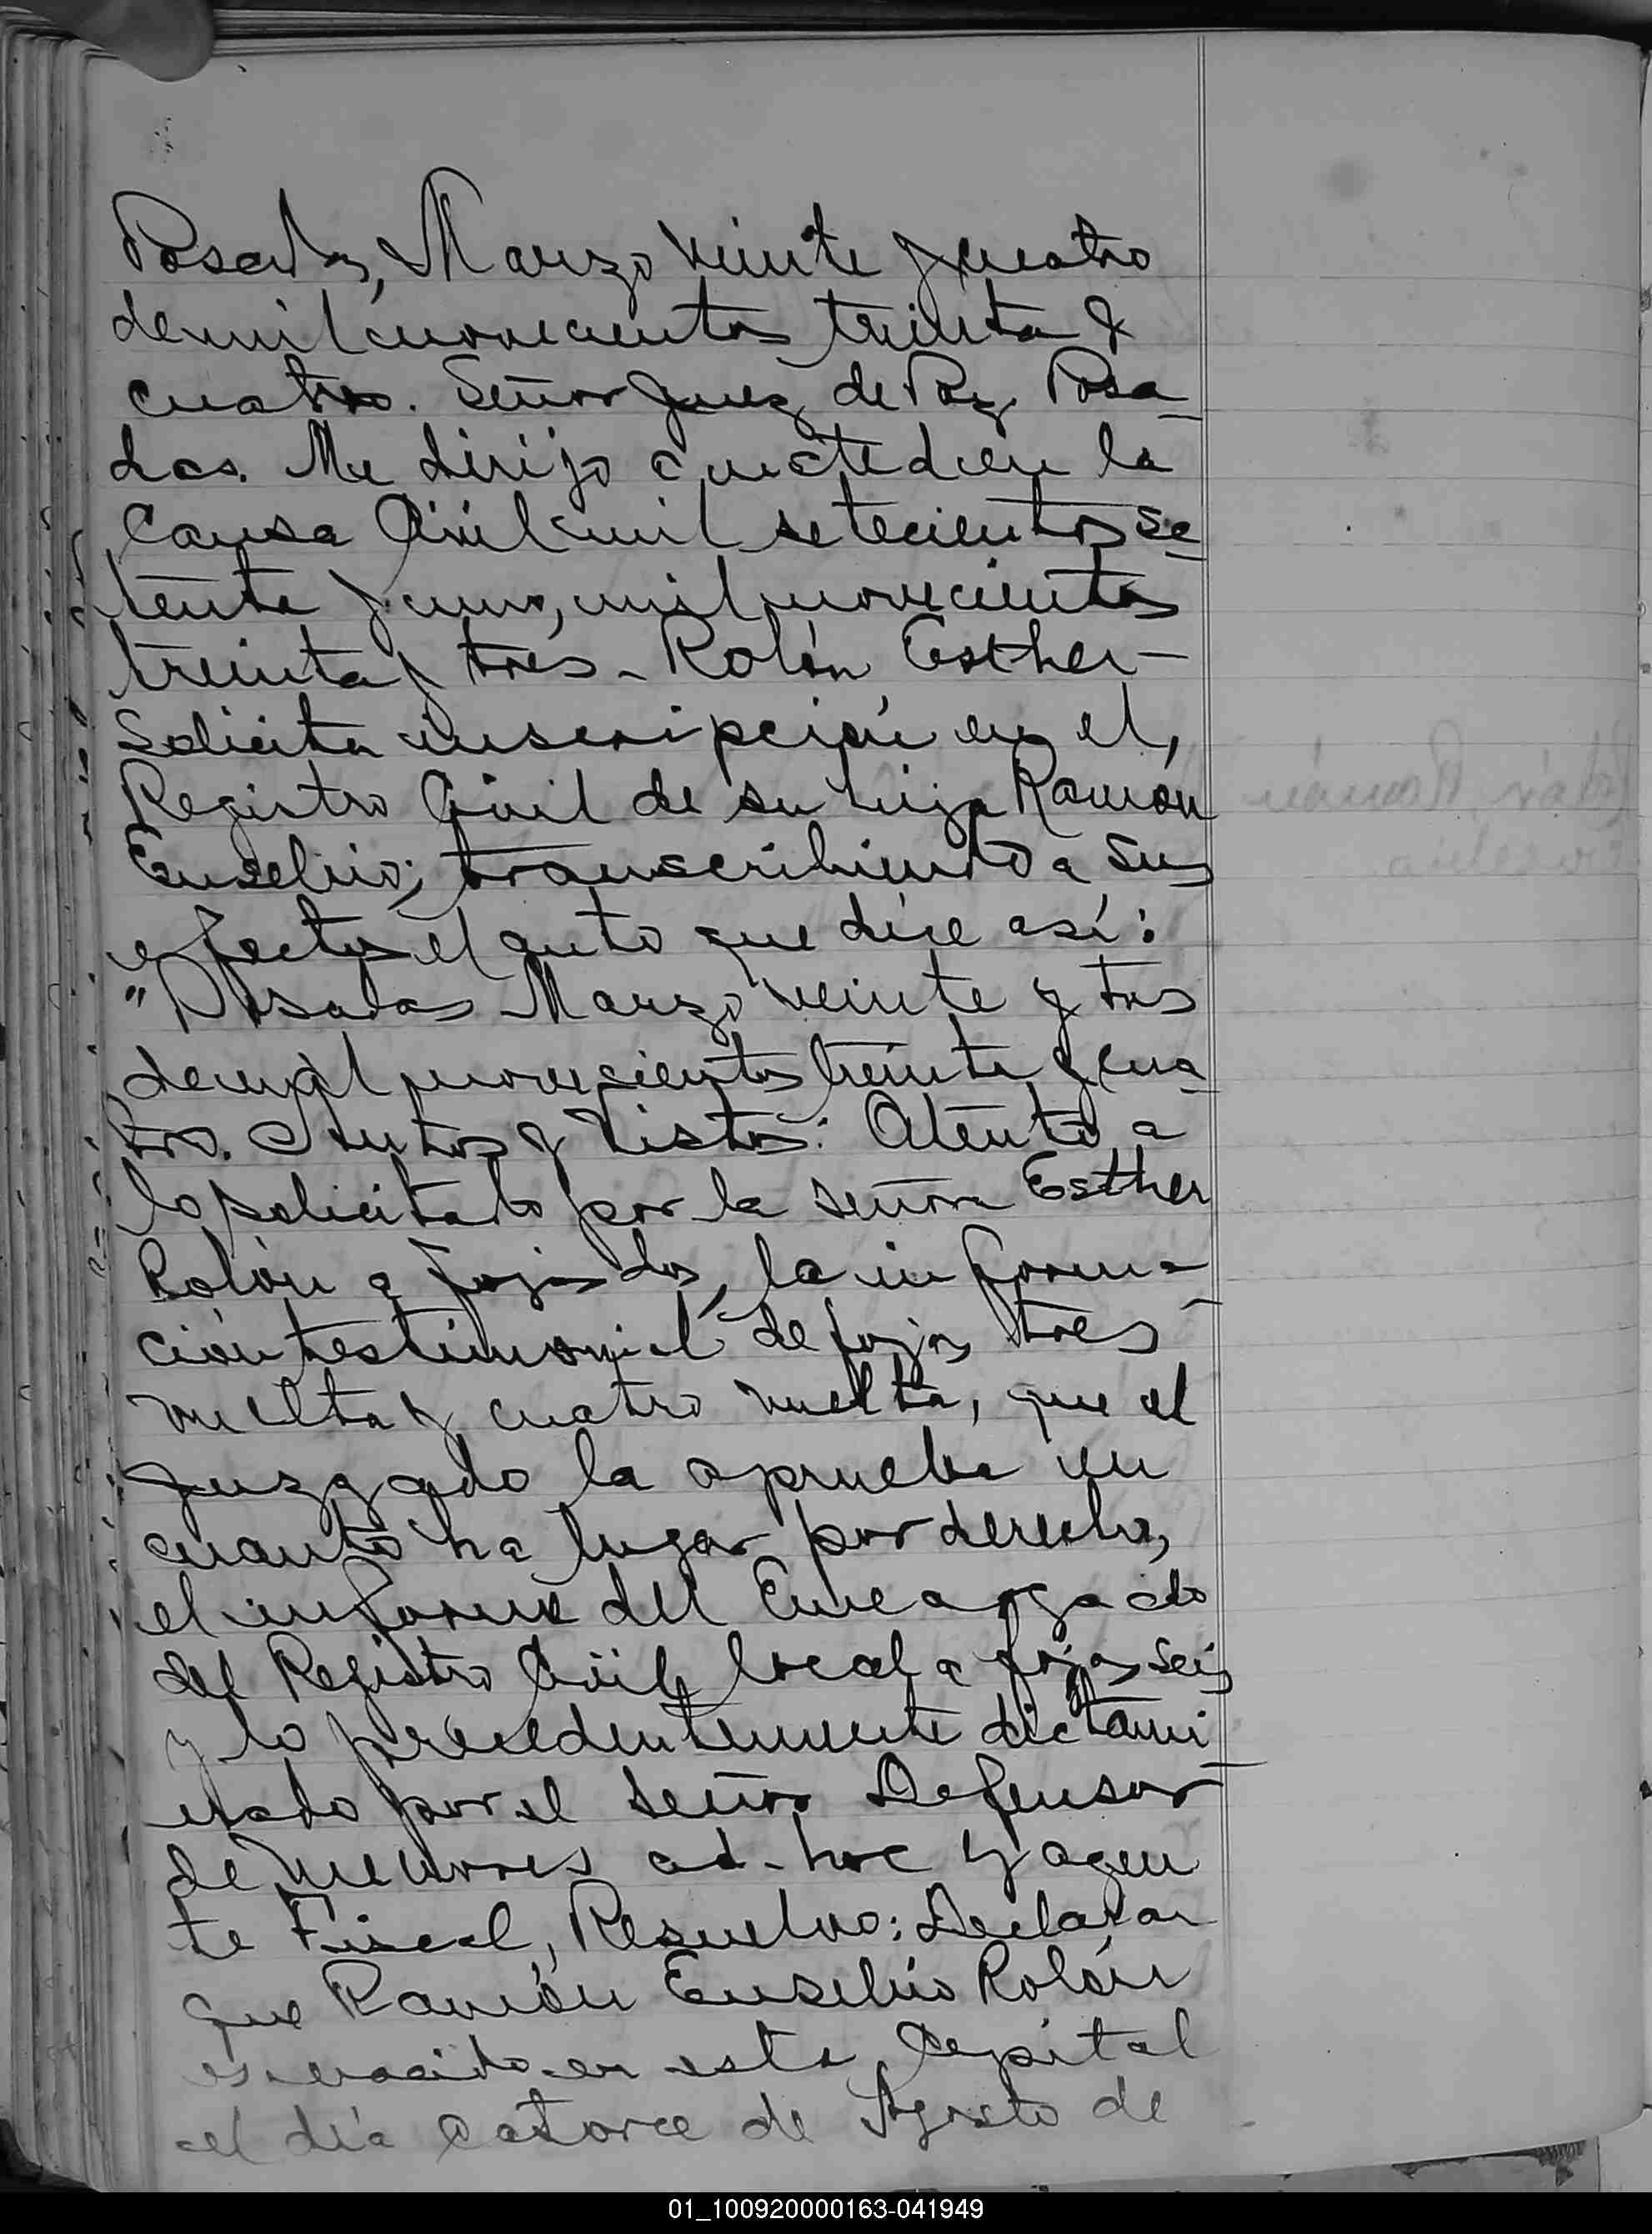 Posadas, Marzo veinte y cuatro
de mil novecientos treinta y
cuatro. Señor Juez de Paz Posa-
das. Me dirijo a usted en la
Causa Civil mil setecientos se-
tenta y uno, mil novecientos
treinta y tres - Rolón Esther -
Solicita inscripción en el
Registro Civil de su hijo Ramón
Eusebio; transcribiendo a sus
efectos el auto que dice así:
"Posadas Marzo veinte y tres
de mil novecientos treinta y cua-
tro. Autos y Vistos: Atento a
lo solicitado por la señora Esther
Rolón a fojas dos, la informa-
ción testimonial de fojas tres
vuelta y cuatro vuelta, que el
Juzgado la aprueba en
cuanto ha lugar por derecho,
el informe del Encargado
del Registro Civil local a fojas seis
y lo precedentemente dictami-
nado por el señor Defensor
de Menores ad-hoc y agen
te Fiscal, Resuelvo: Declarar
que Ramón Eusebio Rolón
es nacido en esta Capital
el día catorce de Agosto de
01_100920000163-041949